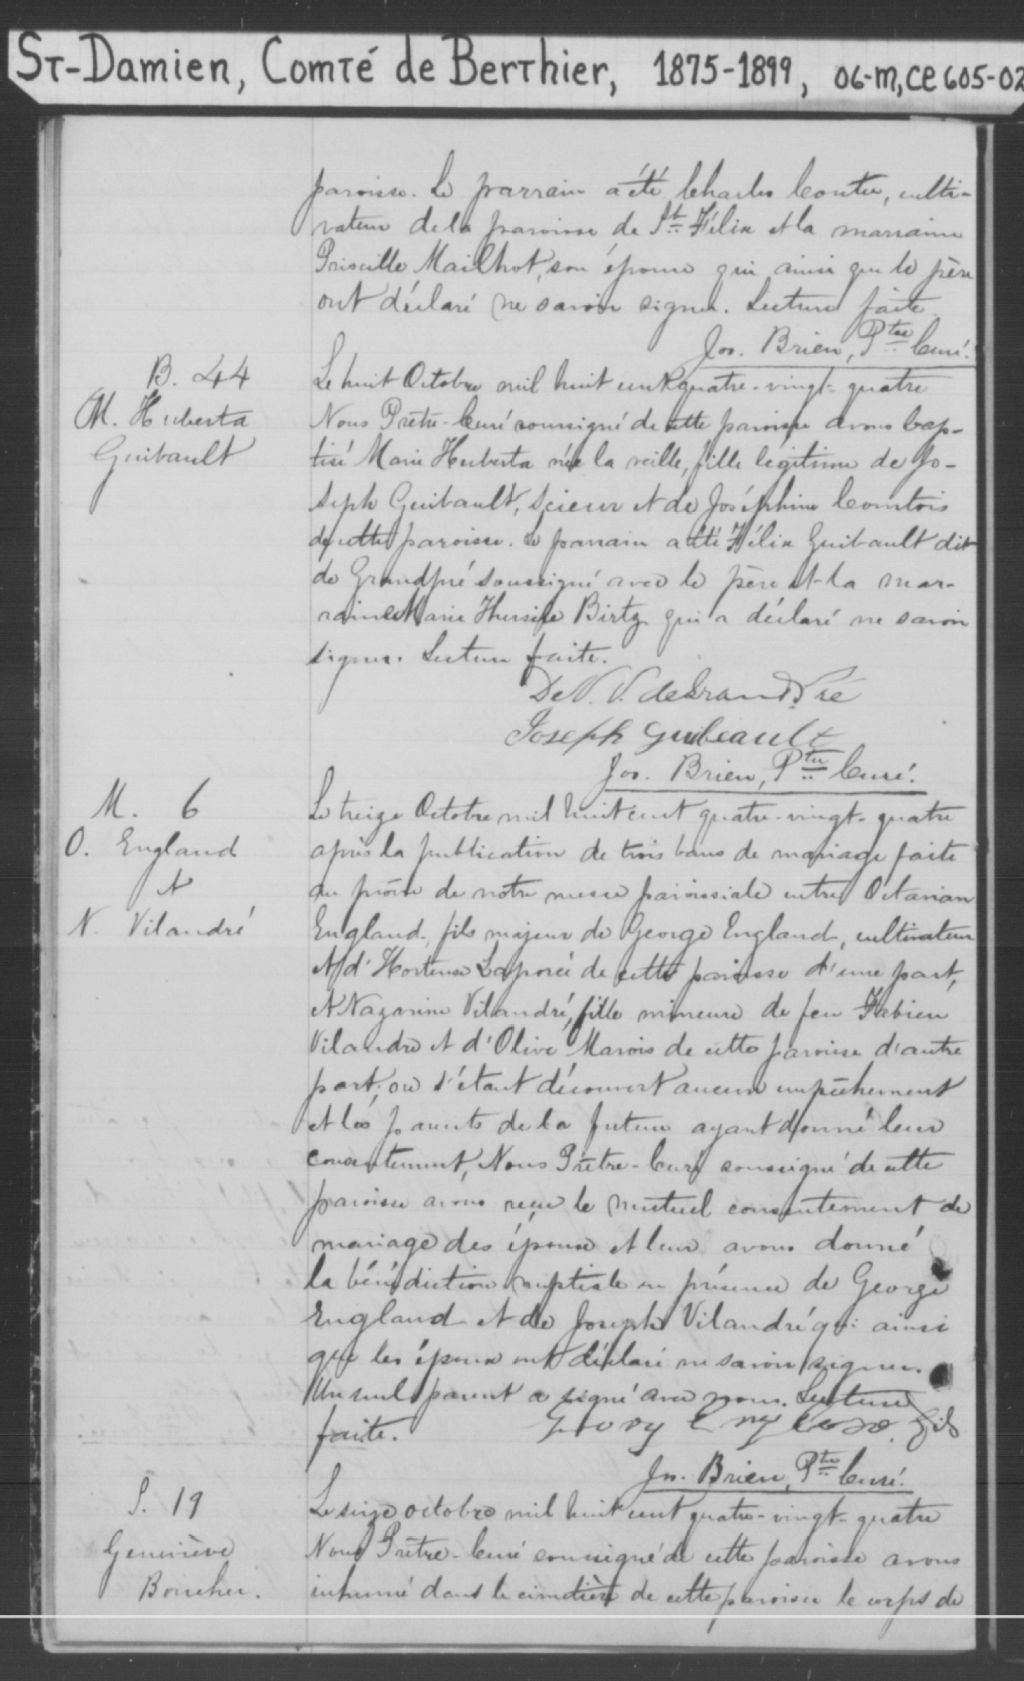 St-Damien, Comté de Berthier, 1875-1899, 06-M, CE605-02
paroisse. Le parrain a été Charles Coutu, culti-
vateur de la paroisse de St. Félix et la marraine
Priscille Mailhot, son épouse qui ainsi que le père
ont déclaré ne savoir signer. Lecture faite.
Jos. Brien, Ptre Curé.
B. 44
M. Huberta
Guibault
Le huit Octobre mil huit cent quatre-vingt-quatre
Nous Prêtre-Curé soussigné de cette paroisse avons bap-
tisé Marie Huberta née la veille, fille légitime de Jo-
seph Guibault, scieur et de Joséphine Comtois
de cette paroisse. Le parrain a été Félix Guibault dit
de Grandpré soussigné avec le père et la mar-
raine Marie Thersile Birtz qui a déclaré ne savoir
signer. Lecture faite.
de GrandPré
Joseph Guibeault
Jos. Brien, Ptre Curé.
M. 6
O. England
et
N. Vilandré
Le treize Octobre mil huit cent quatre-vingt-quatre
après la publication de trois bans de mariage faite
au prône de notre messe paroissiale entre Octavian
England, fils majeur de George England, cultivateur
et d'Hortense Laporte de cette paroisse d'une part,
et Nazarine Vilandré, fille mineure de feu Fabien
Vilandré et d'Olive Marois de cette paroisse d'autre
part; ne s'étant découvert aucun empêchement
et les parents de la future ayant donné leur
consentement, Nous Prêtre-Curé soussigné de cette
paroisse avons reçu le mutuel consentement de
mariage des époux et leur avons donné
la bénédiction nuptiale en présence de George
England et de Joseph Vilandré qui ainsi
que les époux ont déclaré ne savoir signer.
Un seul parent a signé avec nous. Lecture
faite. Georg England fils
Jos. Brien, Ptre Curé.
S. 19
Geneviève
Boucher.
Le seize octobre mil huit cent quatre-vingt-quatre
Nous Prêtre-Curé soussigné de cette paroisse avons
inhumé dans le cimetière de cette paroisse le corps de